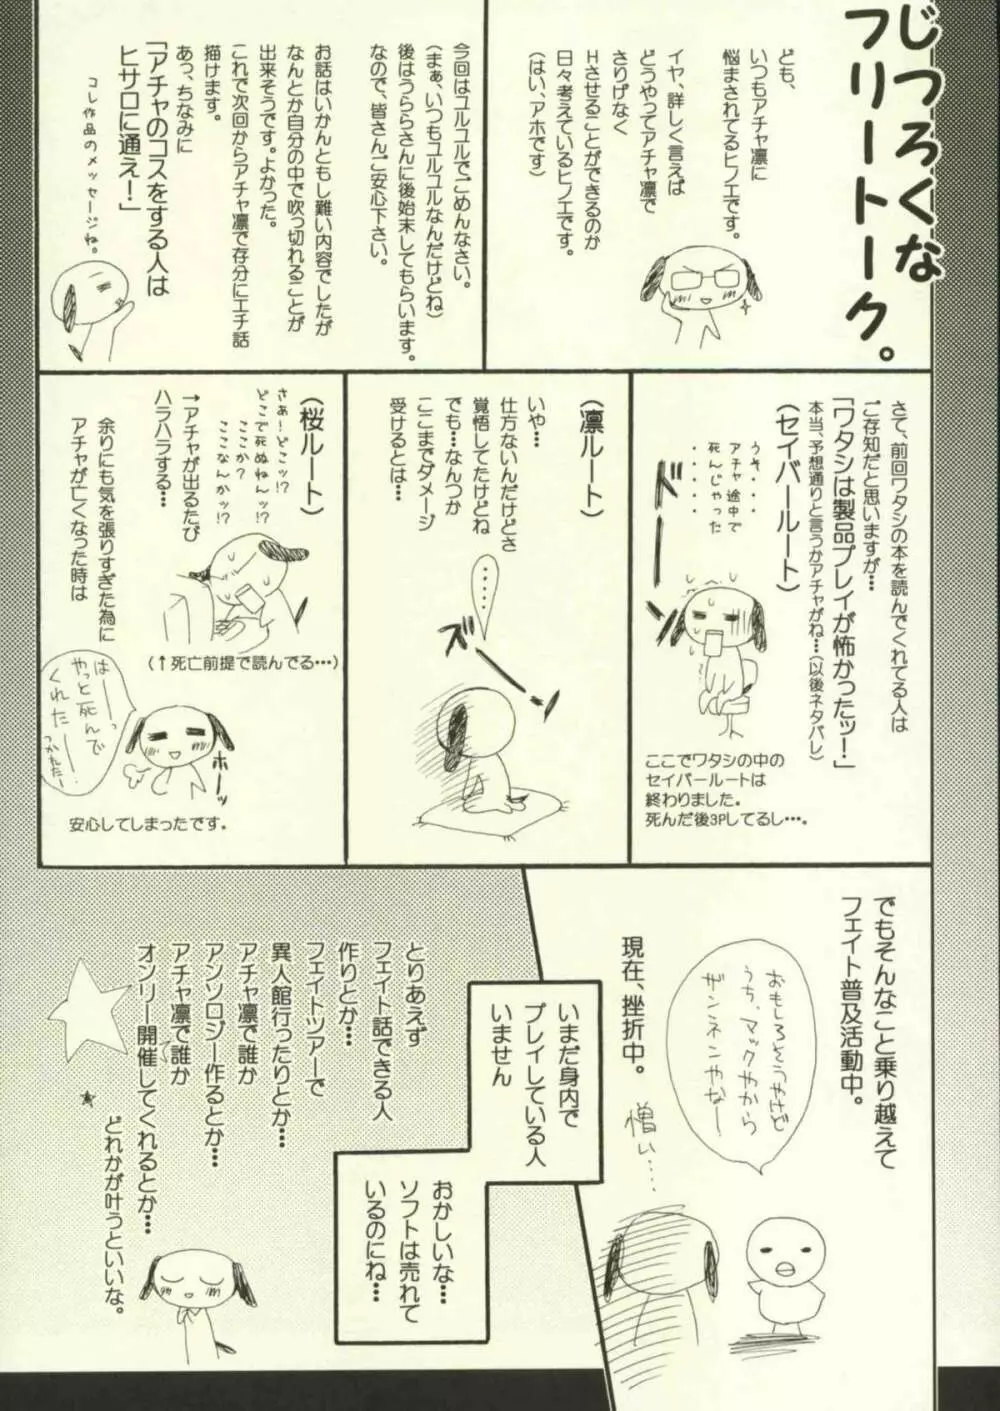 じつろくな
フリートーク。
ども、
いつもアチャ凛に
悩まされてるヒノエです。
イヤ、詳しく言えば
どうやってアチャ凛で
さりげなく
Hさせることができるのか
日々考えているヒノエです。
(はい、アホです)
今回はユルユルでごめんなさい。
(まぁ、いつもユルユルなんだけどね)
後はうららさんに後始末してもらいます。
なので、皆さんご安心下さい。
お話はいかんともし難い内容でしたが
なんとか自分の中で吹っ切れることが
出来そうです。よかった。
これで次回からアチャ凛で存分にエチ話
描けます。
あっ、ちなみに
「アチャのコスをする人は
ヒサロに通え!」
コレ作品のメッセージね。
さて、前回ワタシの本を読んでくれてる人は
ご存知だと思いますが…
「ワタシは製品プレイが怖かったッ!」
本当、予想通りと言うかアチャがね…(以後ネタバレ)
(セイバールート)
うそ・・・・
アチャ途中で
死んじゃった
・・・・・
ドーン
ここでワタシの中の
セイバールートは
終わりました。
死んだ後3Pしてるし…。
(凛ルート)
いや…
仕方ないんだけどさ
覚悟してたけどね
でも…なんつか
ここまでダメージ
受けるとは…
・・・・・
ズーン
(桜ルート)
さあ!どこッ!?
どこで死ぬねんッ!?
ここか?
ここなんかッ!?
→アチャが出るたび
ハラハラする…
(↑死亡前提で読んでる…)
余りにも気を張りすぎた為に
アチャが亡くなった時は
はーーっ
やっと死んで
くれたーー!
つかれたー
ホーッ
安心してしまったです。
でもそんなこと乗り越えて
フェイト普及活動中。
おもしろそうやけど
うち、マックやから
ザンネンやなー!
現在、挫折中。
憎い….
いまだ身内で
プレイしている人
いません
おかしいな…
ソフトは売れて
いるのにね…
とりあえず
フェイト話できる人
作りとか…
フェイトツアーで
異人館行ったりとか…
アチャ凛で誰か
アンソロジー作るとか…
アチャ凛で誰か
オンリー開催してくれるとか…
どれかが叶うといいな。